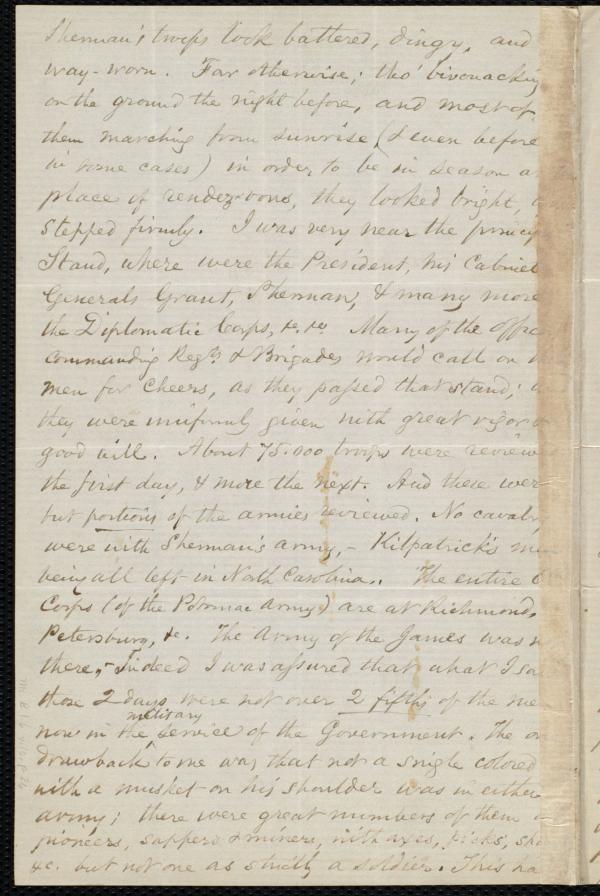 Sherman's troops look battered, dingy, and
way-worn. Far otherwise; tho' bivonacking
on the ground the night before, and most of
them marching from sunrise (& even before
in some cases) in order to be in season a
place of rendezvous, they looked bright,
stepped firmly. I was very near the princip
Stand, where were the President, his Cabinet
Generals Grant, Sherman, & many more
the Diplomatic Corps, &c. &c. Many of the offic
commanding Regts & Brigades would call on
men for cheers, as they passed that stand;
they were uniformly given with great vigor
good will. About 75.000 troops were review
the first day, & more the next. And these wer
but portions of the armies reviewed. No cavalr
were with Sherman's army,- Kilpatrick's
being all left in North Carolina. The entire 6
Corps (of the Potomac Army) are at Richmond,
Petersburg, &c. The Army of the James was n
there,- Indeed I was assured that what I sa
those 2 days were not over 2 fifths of the me
military
now in the service of the Government. The on
drawback to me was that not a single colored
with a musket on his shoulder was in either
army; there were great numbers of them
pioneers, sappers & miners, with axes, picks, sho
&c. but not one as strictly a soldier. This ha